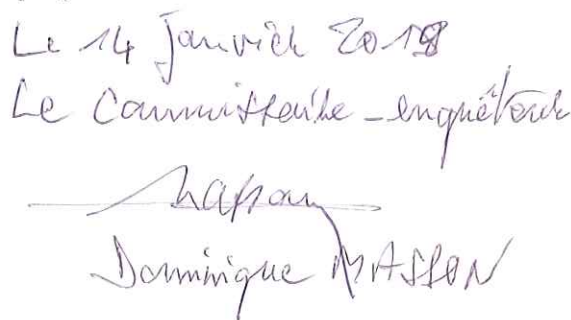 Le 14 Janvier 2018
Le Commissaire-enquêteur
Masson
Dominique MASSON